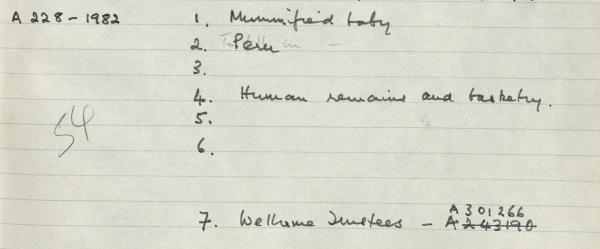 A 228-1982 1. Mummified baby
2. Peru
3.
4. Human remains and basketry.
5.
54
6.
A 301266
7. Wellcome Trustees - A 243190